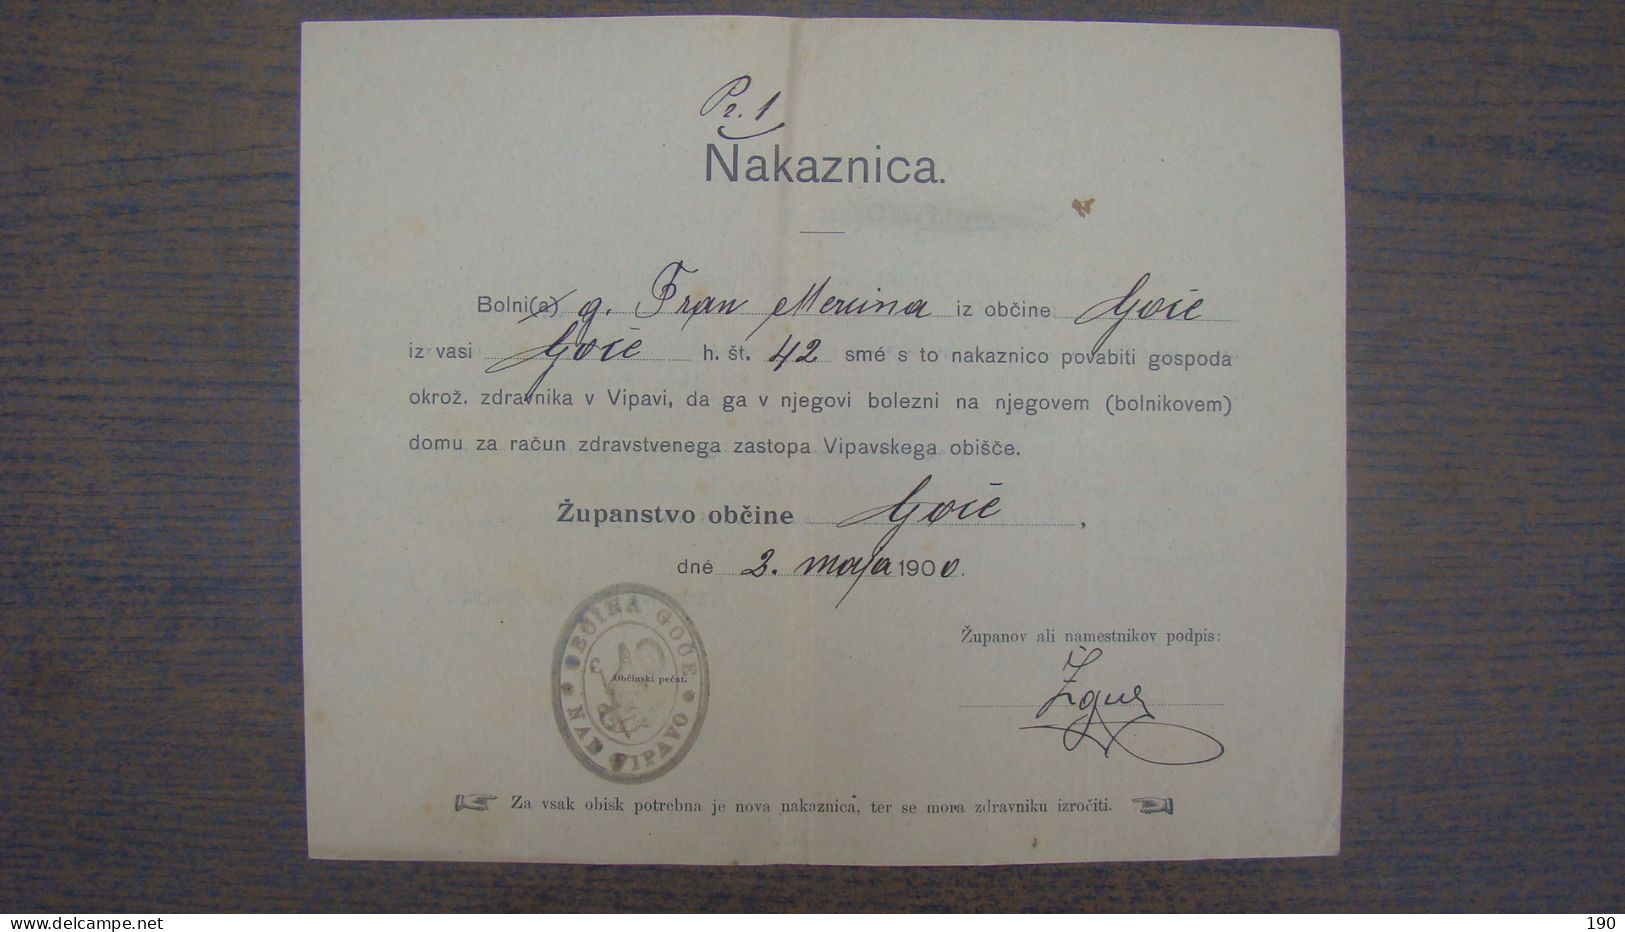 Pr. 1
Nakaznica.
Bolni(a) g. Fran Mercina iz občine Goče
iz vasi Goče h. št. 42 smé s to nakaznico povabiti gospoda
okrož. zdravnika v Vipavi, da ga v njegovi bolezni na njegovem (bolnikovem)
domu za račun zdravstvenega zastopa Vipavskega obišče.
Županstvo občine Goče,
dné 2. maja 1900.
Županov ali namestnikov podpis:
OBČINA GOČE
Občinski pečat.
* NAD VIPAVO *
Za vsak obisk potrebna je nova nakaznica, ter se mora zdravniku izročiti.
www.delcampe.net
190